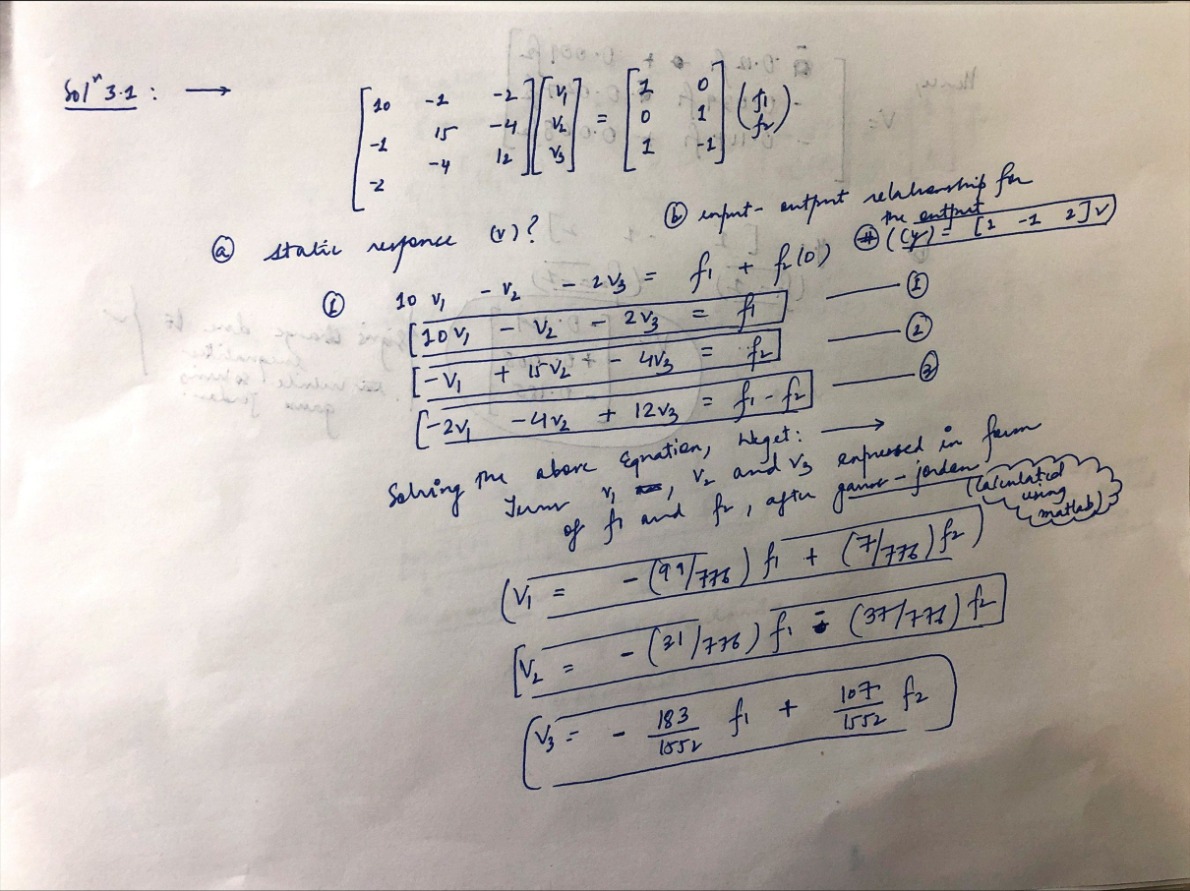 Solⁿ 3.1 : →
[10 -1 -2; -1 15 -4; -2 -4 12] [V₁; V₂; V₃] = [1 0; 0 1; 1 -1] (f₁; f₂)
ⓐ static responce (v)?
ⓑ input-output relationship for
the output
((y) = [1 -1 2] v)
① 10 V₁ - V₂ - 2V₃ = f₁ + f₂(0)
[10V₁ - V₂ - 2V₃ = f₁] — ①
[-V₁ + 15V₂ - 4V₃ = f₂] — ②
[-2V₁ -4V₂ + 12V₃ = f₁ - f₂] — ③
Solving the above Equation, we get: →
Terms V₁, V₂ and V₃ expressed in form
of f₁ and f₂, after gauss-jordan
(Calculated
using
matlab)
(V₁ = -(99/776) f₁ + (7/776) f₂)
[V₂ = -(31/776) f₁ - (37/776) f₂]
(V₃ = - 183/1552 f₁ + 107/1552 f₂)